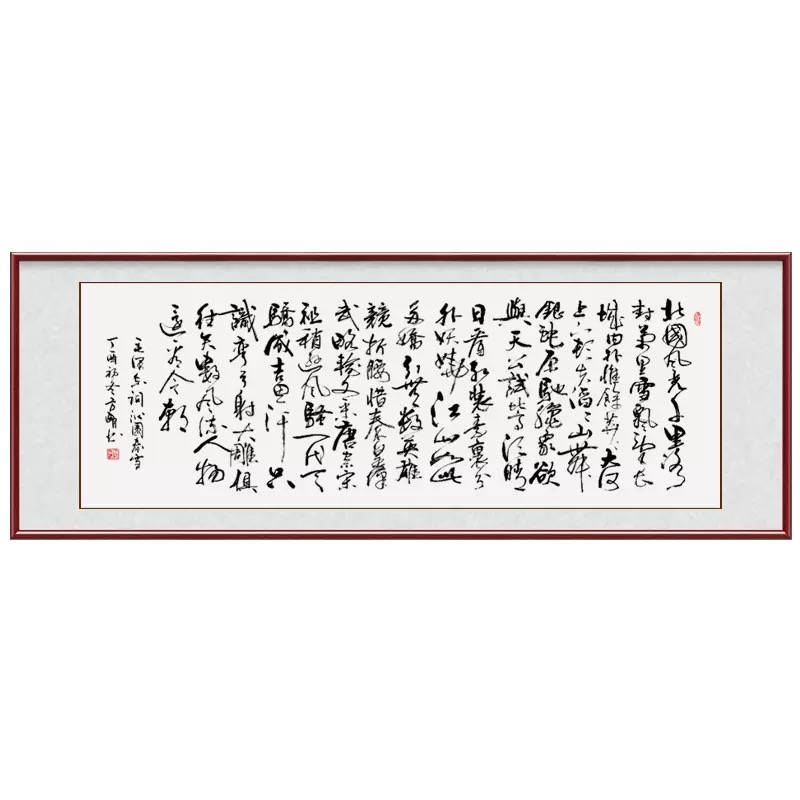 北國風光千里冰
封萬里雪飄望長
城内外惟餘莽々大河
上下頓失滔々山舞
銀蛇原馳蠟象欲
與天公試比高須晴
日看紅裝素裹分
外妖嬈江山如此
多嬌引無數英雄
競折腰惜秦皇漢
武略輸文采唐宗宋
祖稍遜風騷一代天
驕成吉思汗只
識彎弓射大雕俱
往矣數風流人物
還看今朝
毛澤東詞沁園春雪
丁酉初冬方